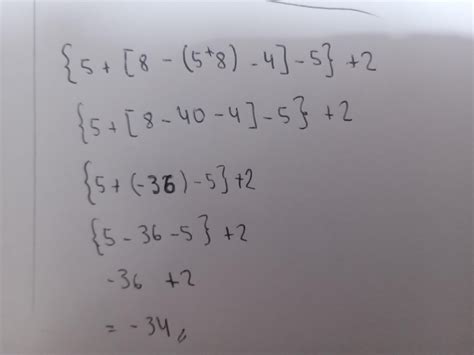 {5 + [8 - (5*8) - 4] - 5} + 2
{5 + [8 - 40 - 4] - 5} + 2
{5 + (-36) - 5} + 2
{5 - 36 - 5} + 2
-36 + 2
= -34